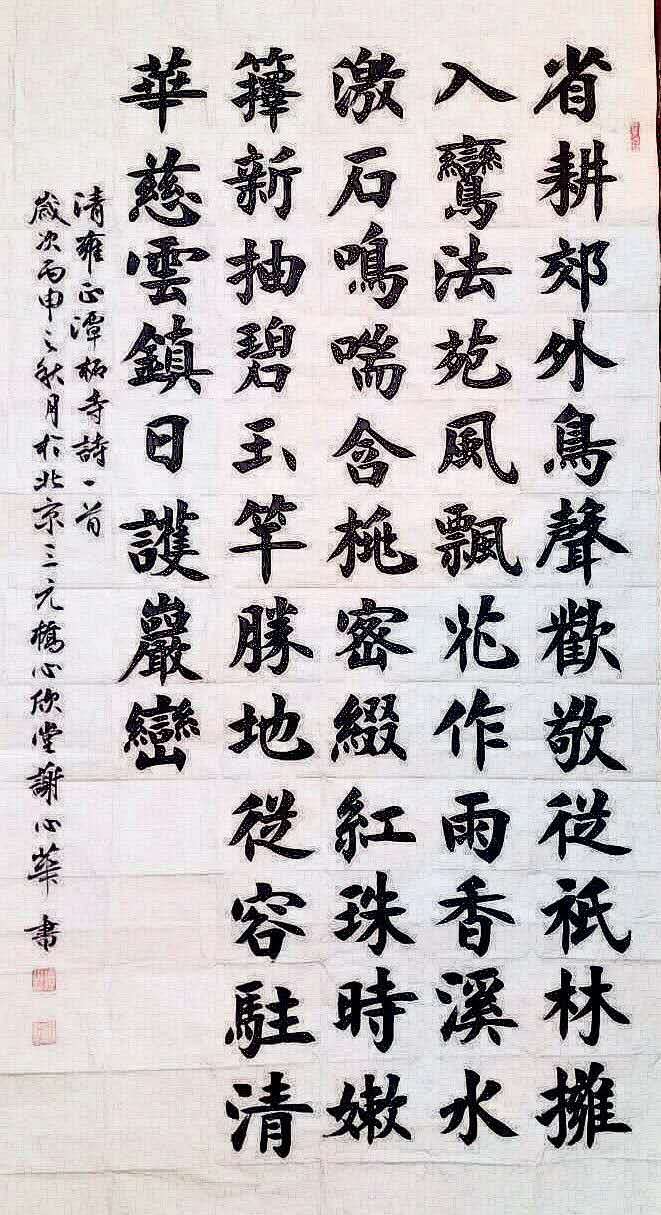 省耕郊外鳥聲歡敬從祇林擁
入鸞法苑風飄花作雨香溪水
激石鳴喘含桃密綴紅珠時嫩
籜新抽碧玉竿勝地從容駐清
華慈雲鎮日護巖巒
清雍正潭柘寺詩一首
歲次丙申之秋月於北京三元橋心欣堂謝心華書